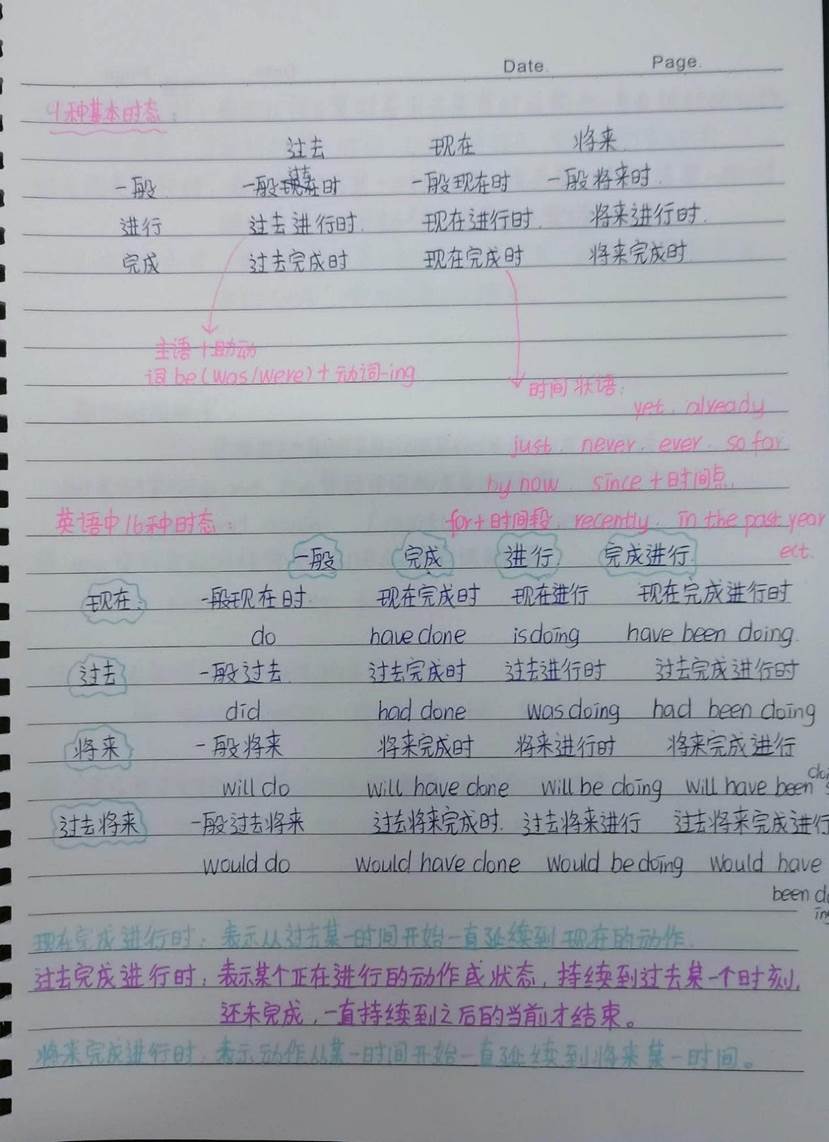 Date. Page.
4种基本时态:
过去 现在 将来
一般 一般过去时 一般现在时 一般将来时.
进行 过去进行时. 现在进行时. 将来进行时.
完成 过去完成时 现在完成时 将来完成时
主语+助动
词be(was/were)+动词-ing
时间状语:
yet. already
just. never. ever. so far
by now. since+时间点.
英语中16种时态: for+时间段. recently. in the past year
ect.
一般 完成 进行 完成进行
现在: 一般现在时 现在完成时 现在进行 现在完成进行时
do have done is doing have been doing.
过去 一般过去 过去完成时 过去进行时 过去完成进行时
did had done was doing had been doing
将来 一般将来 将来完成时 将来进行时 将来完成进行
will do will have done will be doing will have been
过去将来 一般过去将来 过去将来完成时. 过去将来进行 过去将来完成进行
would do would have done would be doing would have
been do
in
现在完成进行时: 表示从过去某一时间开始一直延续到现在的动作.
过去完成进行时: 表示某个正在进行的动作或状态, 持续到过去某一个时刻,
还未完成, 一直持续到之后的当前才结束。
将来完成进行时: 表示动作从某一时间开始一直延续到将来某一时间。